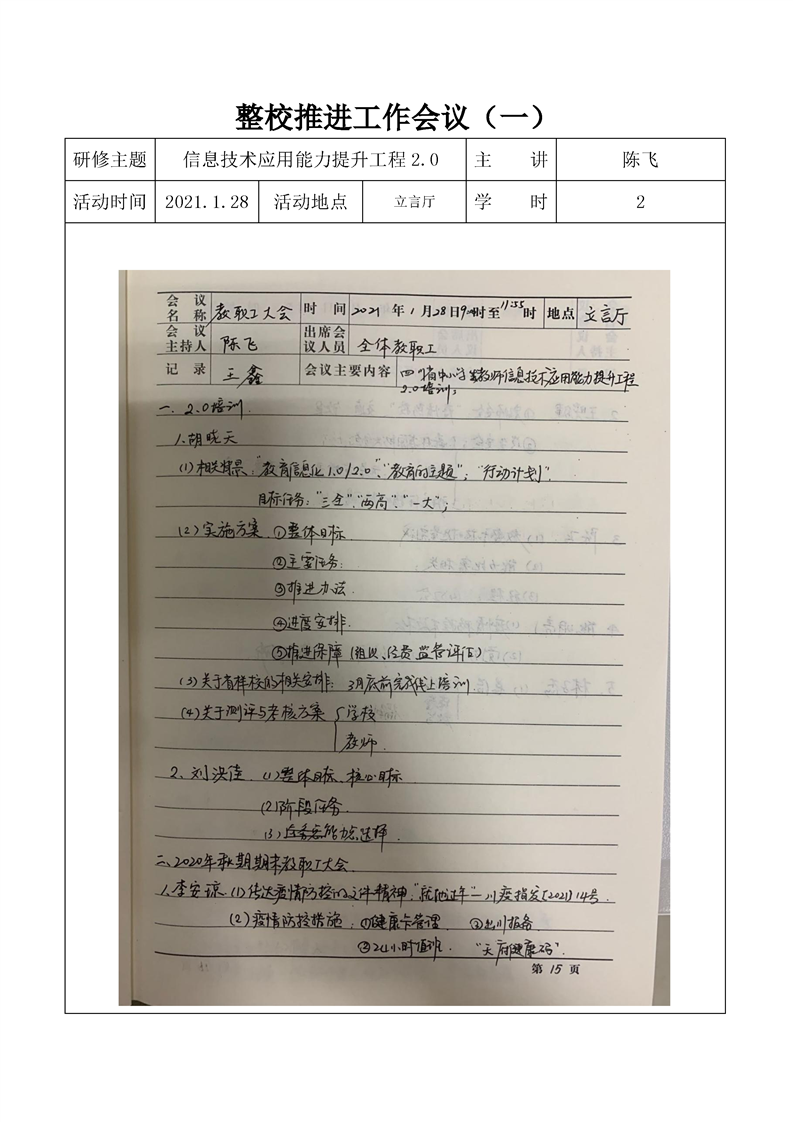 整校推进工作会议（一）
研修主题 信息技术应用能力提升工程 2.0 主 讲 陈飞
活动时间 2021.1.28 活动地点 立言厅 学 时 2
会议名称 教职工大会 时间 2021 年 1 月 28 日 9 时至 11:55 时 地点 立言厅
会议主持人 陈飞 出席会议人员 全体教职工
记录 王鑫 会议主要内容 四川省中小学教师信息技术应用能力提升工程
2.0培训;
一. 2.0培训.
1.胡晓天
(1)相关背景:"教育信息化1.0/2.0"、"教育的主题"; "行动计划".
目标任务:"三全""两高""一大";
(2)实施方案 ①整体目标
②主要任务:
③推进办法.
④进度安排.
⑤推进保障 (组织、经费 监管评估)
(3)关于样校的相关安排: 3月底前完成线上培训.
(4)关于测评与考核方案 { 学校
教师.
2. 刘洪佳. (1)整体目标、核心目标
(2)阶段任务.
(3)能力点选择.
二、2020年秋期期末教职工大会.
1.李安琼 (1)传达疫情防控的文件精神."就地过年"—川疫指发[2021]14号.
(2)疫情防控措施: ①健康卡管理 ②出川报备
③24小时值班. "天府健康码".
第 15 页